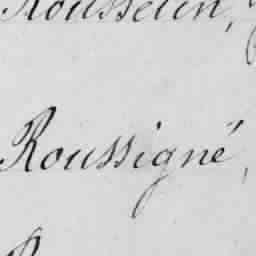 Rousselin,
Roussigné,